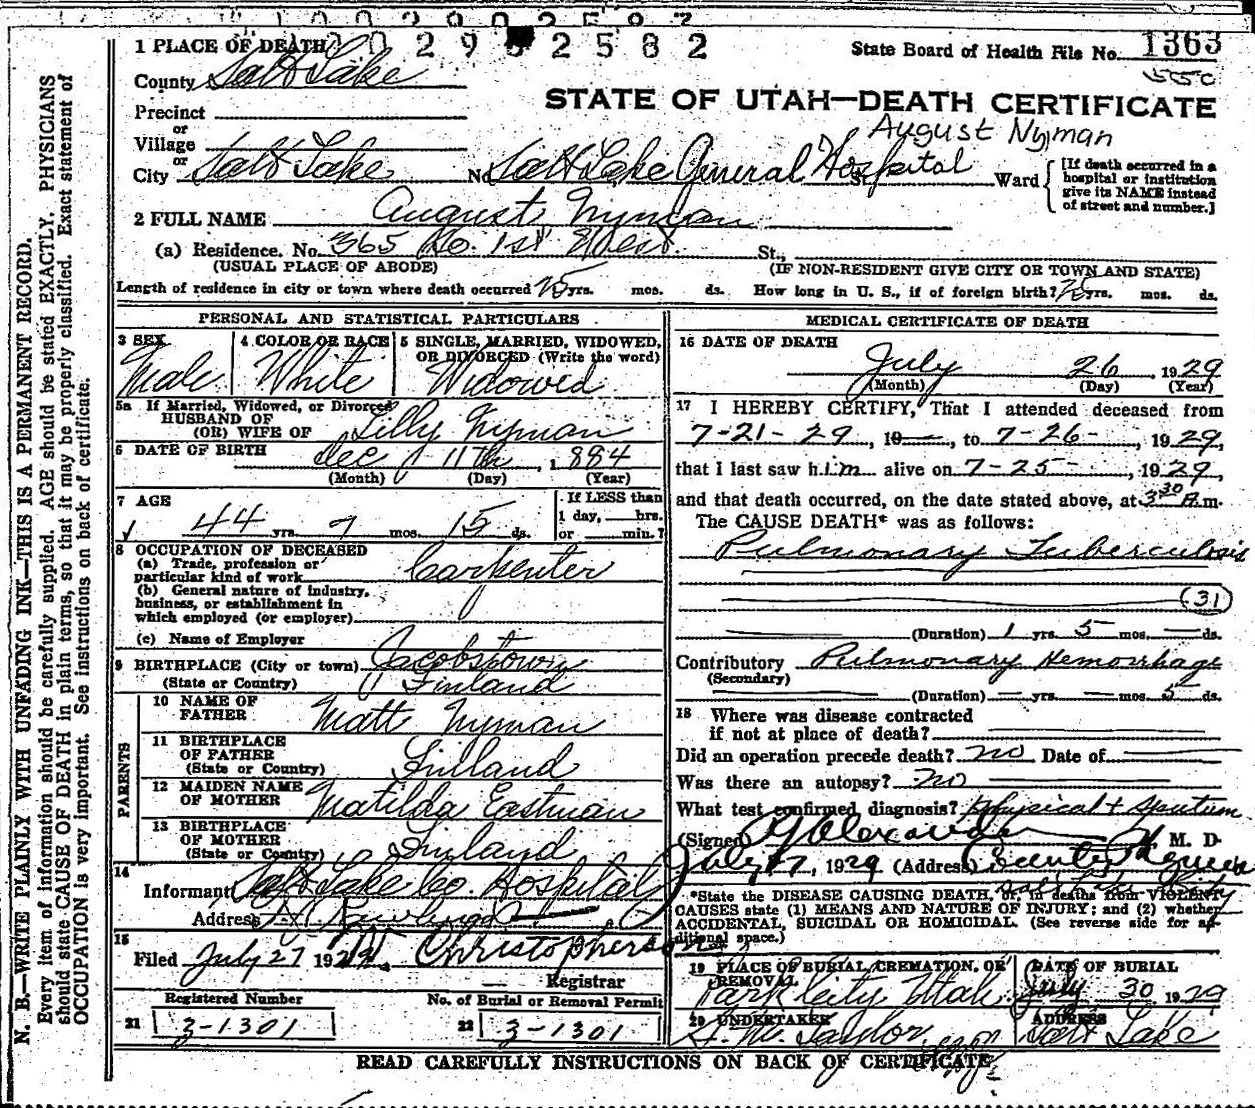 0 0 2 9 0 2 5 8 2
1 PLACE OF DEATH
State Board of Health File No. 1363
County Salt Lake
55C
STATE OF UTAH—DEATH CERTIFICATE
Precinct
or
Village
August Nyman
or
City Salt Lake No. Salt Lake General Hospital St., Ward
[If death occurred in a hospital or institution give its NAME instead of street and number.]
2 FULL NAME August Nyman
(a) Residence. No. 365 So. 1st West St.,
(USUAL PLACE OF ABODE) (IF NON-RESIDENT GIVE CITY OR TOWN AND STATE)
Length of residence in city or town where death occurred 25 yrs. mos. ds. How long in U. S., if of foreign birth? 25 yrs. mos. ds.
PERSONAL AND STATISTICAL PARTICULARS
3 SEX 4 COLOR OR RACE 5 SINGLE, MARRIED, WIDOWED, OR DIVORCED (Write the word)
Male White Widowed
5a If Married, Widowed, or Divorced
HUSBAND OF
(OR) WIFE OF Lilly Nyman
6 DATE OF BIRTH Dec 11th, 1884
(Month) (Day) (Year)
7 AGE If LESS than
44 yrs. 7 mos. 15 ds. 1 day, hrs.
or min.?
8 OCCUPATION OF DECEASED
(a) Trade, profession or
particular kind of work Carpenter
(b) General nature of industry,
business, or establishment in
which employed (or employer)
(c) Name of Employer
9 BIRTHPLACE (City or town) Jacobstown
(State or Country) Finland
PARENTS
10 NAME OF
FATHER Matt Nyman
11 BIRTHPLACE
OF FATHER
(State or Country) Finland
12 MAIDEN NAME
OF MOTHER Matilda Eastman
13 BIRTHPLACE
OF MOTHER
(State or Country) Finland
14
Informant Salt Lake Co. Hospital
Address
15
Filed July 27 1929 Christopherson
Registrar
Registered Number No. of Burial or Removal Permit
21 3-1301 22 3-1301
MEDICAL CERTIFICATE OF DEATH
16 DATE OF DEATH
July 26, 1929
(Month) (Day) (Year)
17 I HEREBY CERTIFY, That I attended deceased from
7-21-29, 19—, to 7-26-, 1929,
that I last saw him alive on 7-25-, 1929,
and that death occurred, on the date stated above, at 3 30 A.m.
The CAUSE DEATH* was as follows:
Pulmonary Tuberculosis
(31)
(Duration) 1 yrs. 5 mos. — ds.
Contributory Pulmonary Hemorrhage
(Secondary)
(Duration) — yrs. — mos. 5 ds.
18 Where was disease contracted
if not at place of death?
Did an operation precede death? no Date of
Was there an autopsy? no
What test confirmed diagnosis? Physical + Sputum
(Signed) M. D.
July 27, 1929 (Address)
*State the DISEASE CAUSING DEATH, or, in deaths from VIOLENT
CAUSES state (1) MEANS AND NATURE OF INJURY; and (2) whether
ACCIDENTAL, SUICIDAL OR HOMICIDAL. (See reverse side for ad-
ditional space.)
19 PLACE OF BURIAL, CREMATION, OR REMOVAL DATE OF BURIAL
Park City Utah July 30 1929
20 UNDERTAKER ADDRESS
Taylor Salt Lake
READ CAREFULLY INSTRUCTIONS ON BACK OF CERTIFICATE
N. B.—WRITE PLAINLY WITH UNFADING INK—THIS IS A PERMANENT RECORD.
Every item of information should be carefully supplied. AGE should be stated EXACTLY. PHYSICIANS
should state CAUSE OF DEATH in plain terms, so that it may be properly classified. Exact statement of
OCCUPATION is very important. See instructions on back of certificate.